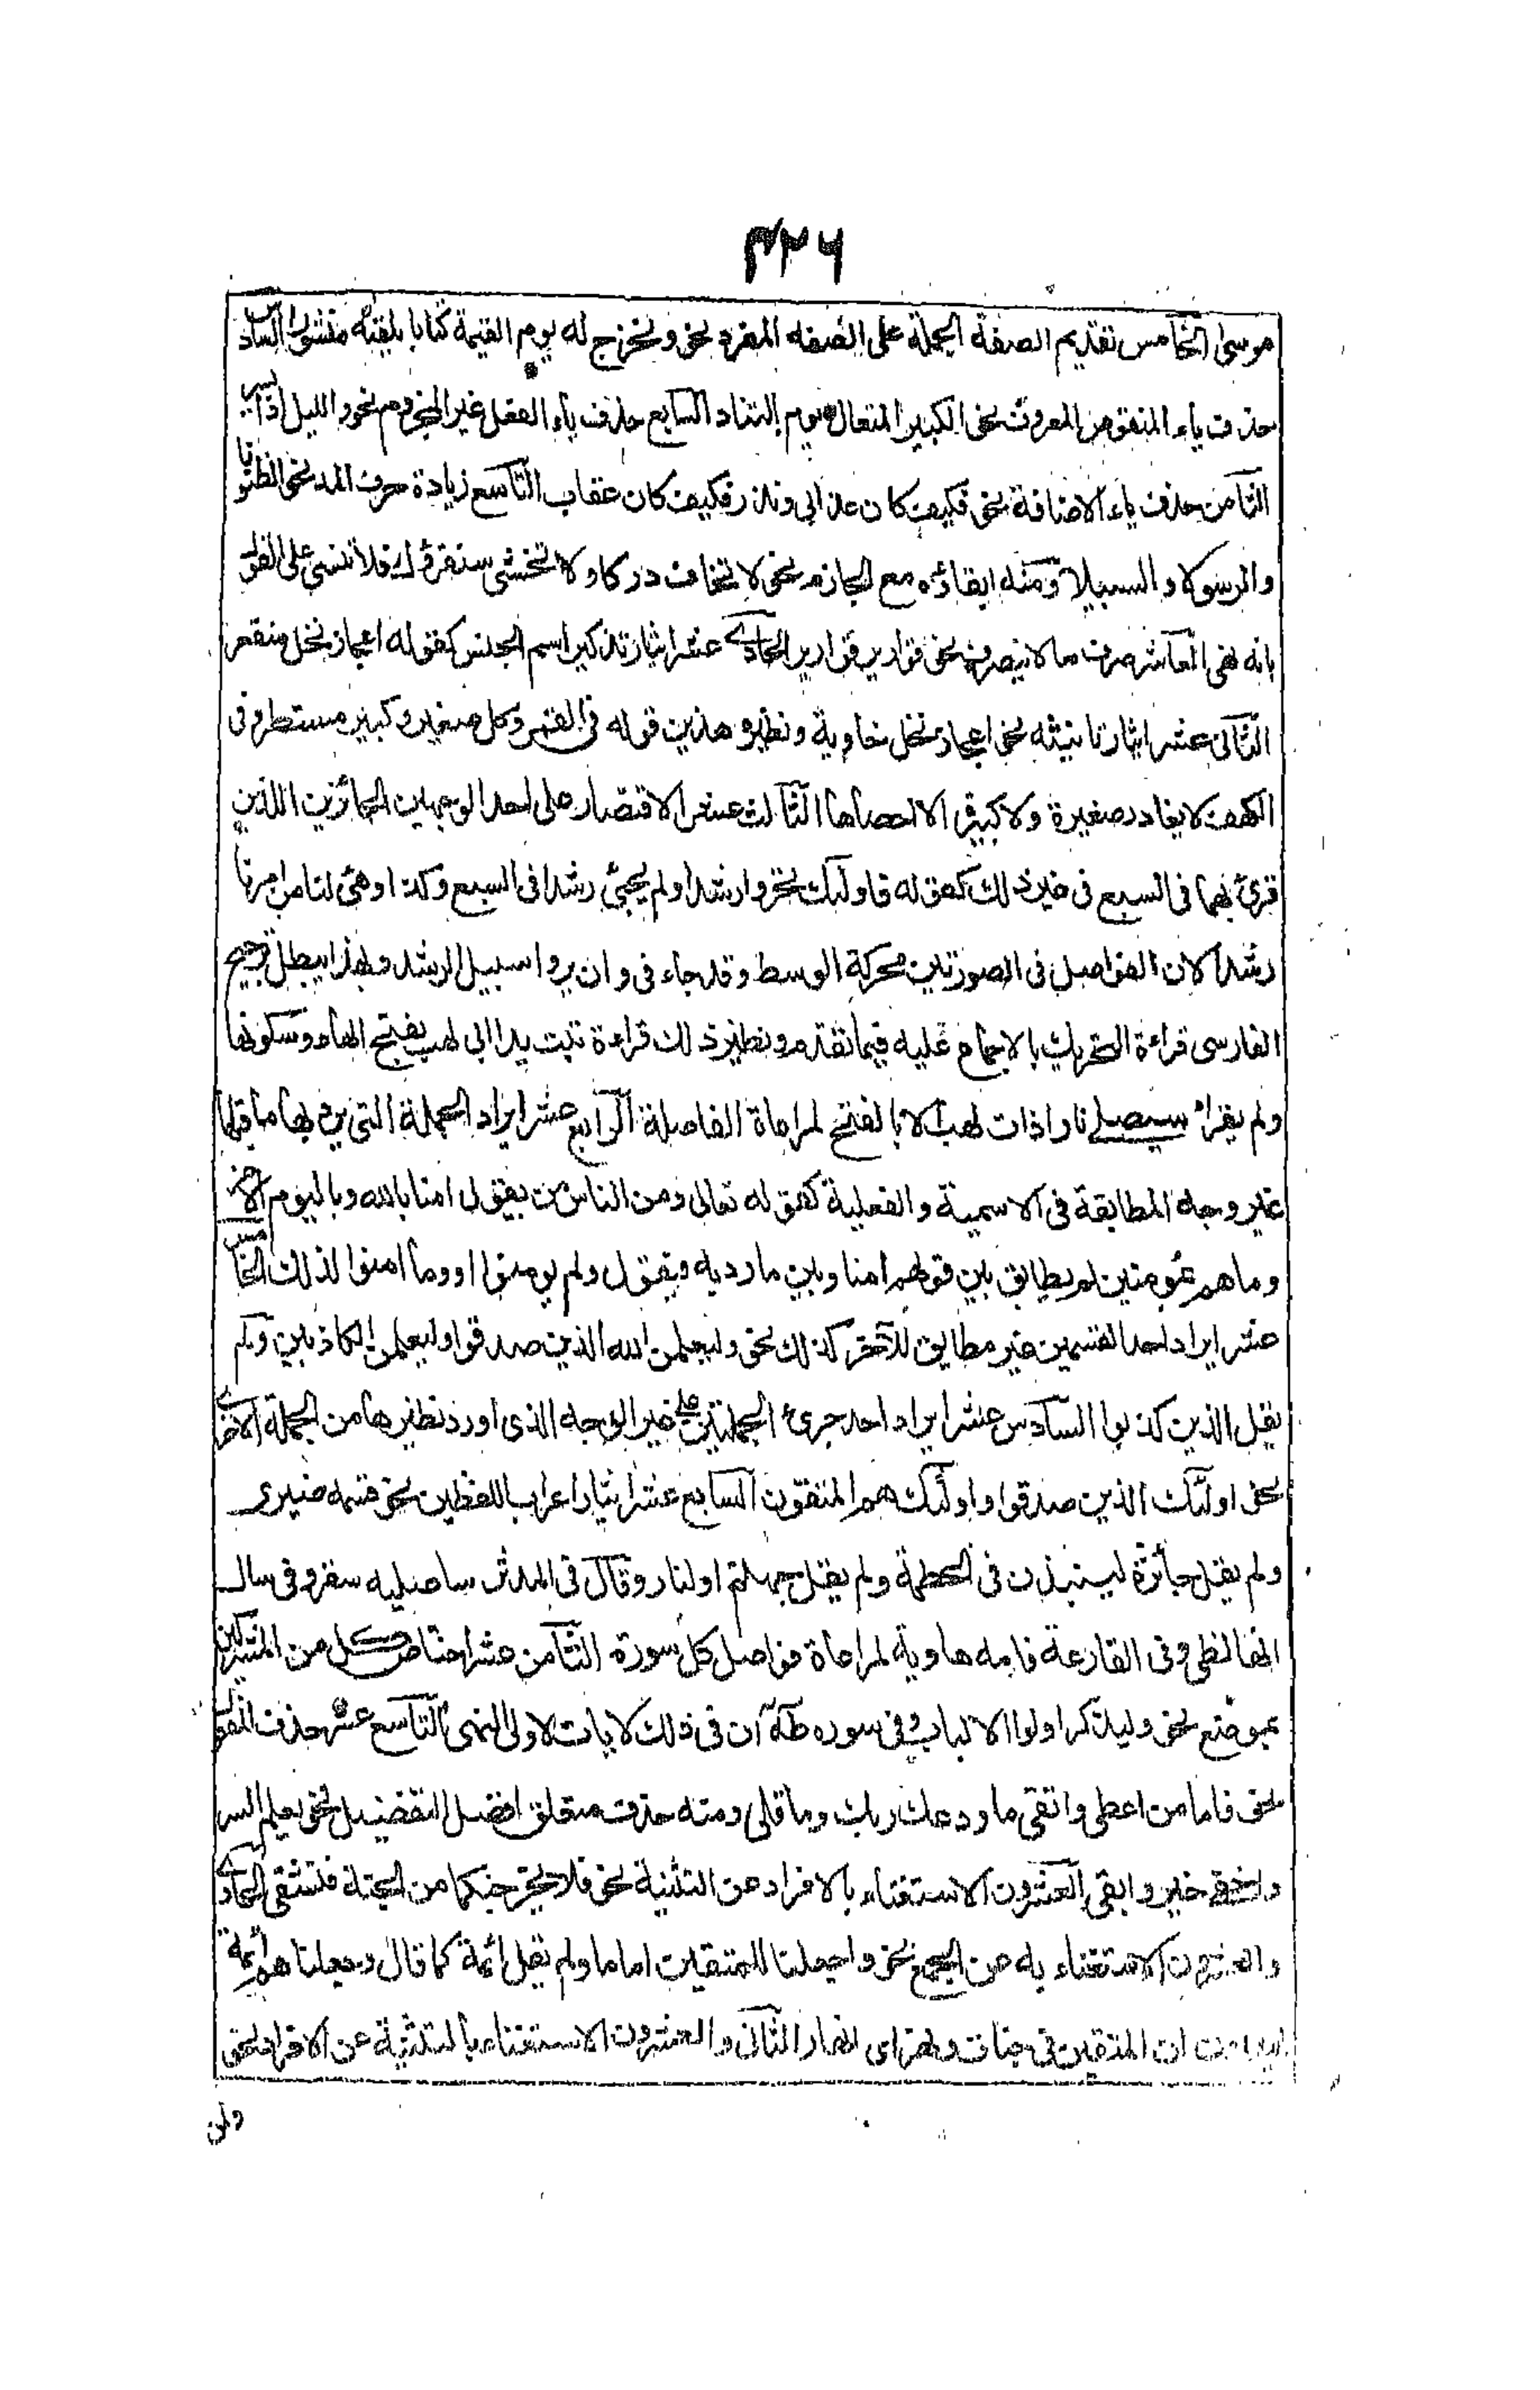 ٣٢٦
موسى الخامس تقديم الصفة الجملة على الصفه المفرد نحو ونخرج له يوم القيمة كتابا يلقىه منشورا السادس
حذف ياء المنقوص المعروف نحو الكبير المتعال يوم التناد السابع حذف ياء الفعل غير المجزوم نحو والليل اذا يسر
الثامن حذف ياء الاضافة نحو فكيف كان عذابى ونذر فكيف كان عقاب التاسع زيادة حرف المد نحو الظنونا
والرسولا والسبيلا ومنه ابقاؤه مع الجازم نحو لا تخاف دركا ولا تخشى سنقرئك فلا تنسى على القول
بانه نهى العاشر صرف ما لا ينصرف نحو قوارير قوارير الحادى عشر ايثار تذكير اسم الجنس كقوله اعجاز نخل منقعر
الثانى عشر ايثار تانيثه نحو اعجاز نخل خاوية ونظير هذين قوله فى القمر وكل صغير وكبير مستطر وفى
الكهف لا يغادر صغيرة ولا كبيرة الا احصاها الثالث عشر الاقتصار على احد الوجهين الجائزين اللذين
قرئ بهما فى السبع فى غير ذلك كقوله فاولئك تحروا رشدا ولم يجئ رشدا فى السبع وكذا وهئ لنا من امرنا
رشدا لان الفواصل فى الصورتين محركة الوسط وقد جاء فى وان يروا سبيل الرشد وبهذا يبطل ترجيح
الفارسى قراءة التحريك بالاجماع عليه فيما تقدم ونظير ذلك قراءة تبت يدا ابى لهب بفتح الهاء وسكونها
ولم يقرا سيصلى نارا ذات لهب الا بالفتح لمراعاة الفاصلة الرابع عشر ايراد الجملة التى يرد بها ما قبلها
غير وجه المطابقة فى الاسمية والفعلية كقوله تعالى ومن الناس من يقول امنا بالله وباليوم الاخر
وما هم بمؤمنين لم يطابق بين قولهم امنا وبين ما رد به ويقول ولم يومنوا او وما امنوا لذلك الخامس
عشر ايراد احد القسمين غير مطابق للآخر كذلك نحو وليعلمن الله الذين صدقوا وليعلمن الكاذبين ولم
يقل الذين كذبوا السادس عشر ايراد احد جزئ الجملتين على غير الوجه الذى اورد نظيرها من الجملة الاخرى
نحو اولئك الذين صدقوا واولئك هم المتقون السابع عشر ايثار اعراب اللفظين نحو قسمه ضيزى
ولم يقل جائزة لينبذن فى الحطمة ولم يقل جهنم او لنار وقال فى المدثر ساصليه سقر وفى سال
انها لظى وفى القارعة فامه هاوية لمراعاة فواصل كل سورة الثامن عشر اختصاص كل من المشتركين
بموضع نحو وليذكر اولوا الالباب وفى سوره طه آن فى ذلك لايات لاولى النهى التاسع عشر حذف المفعول
نحو فاما من اعطى واتقى ما ودعك ربك وما قلى ومنه حذف متعلق افضل التفضيل نحو يعلم السر
واخفى خير وابقى العشرون الاستغناء بالافراد عن التثنية نحو فلا يخرجنكما من الجنة فتشقى الحادى
والعشرون الاستغناء به عن الجمع نحو واجعلنا للمتقين اماما ولم يقل ائمة كما قال وجعلناهم ائمة
ان المتقين فى جنات ونهر اى انهار الثانى والعشرون الاستغناء بالتثنية عن الافراد نحو
ولمن